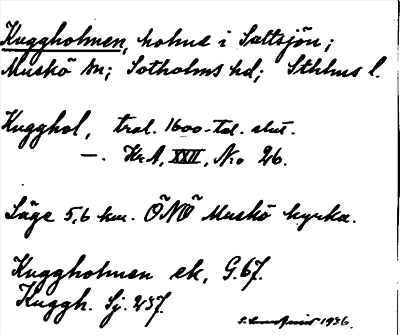 Kuggholmen, holme i Saltsjön;
Muskö sn; Sotholms hd; Sthlms l.
Kugghol, tral. 1600-td. slut.
—. KrA, XXII, N:o 26.
Läge 5,6 km. ÖNÖ Muskö kyrka.
Kuggholmen ek, G.67.
Kuggh. Sj. 237.
1936.